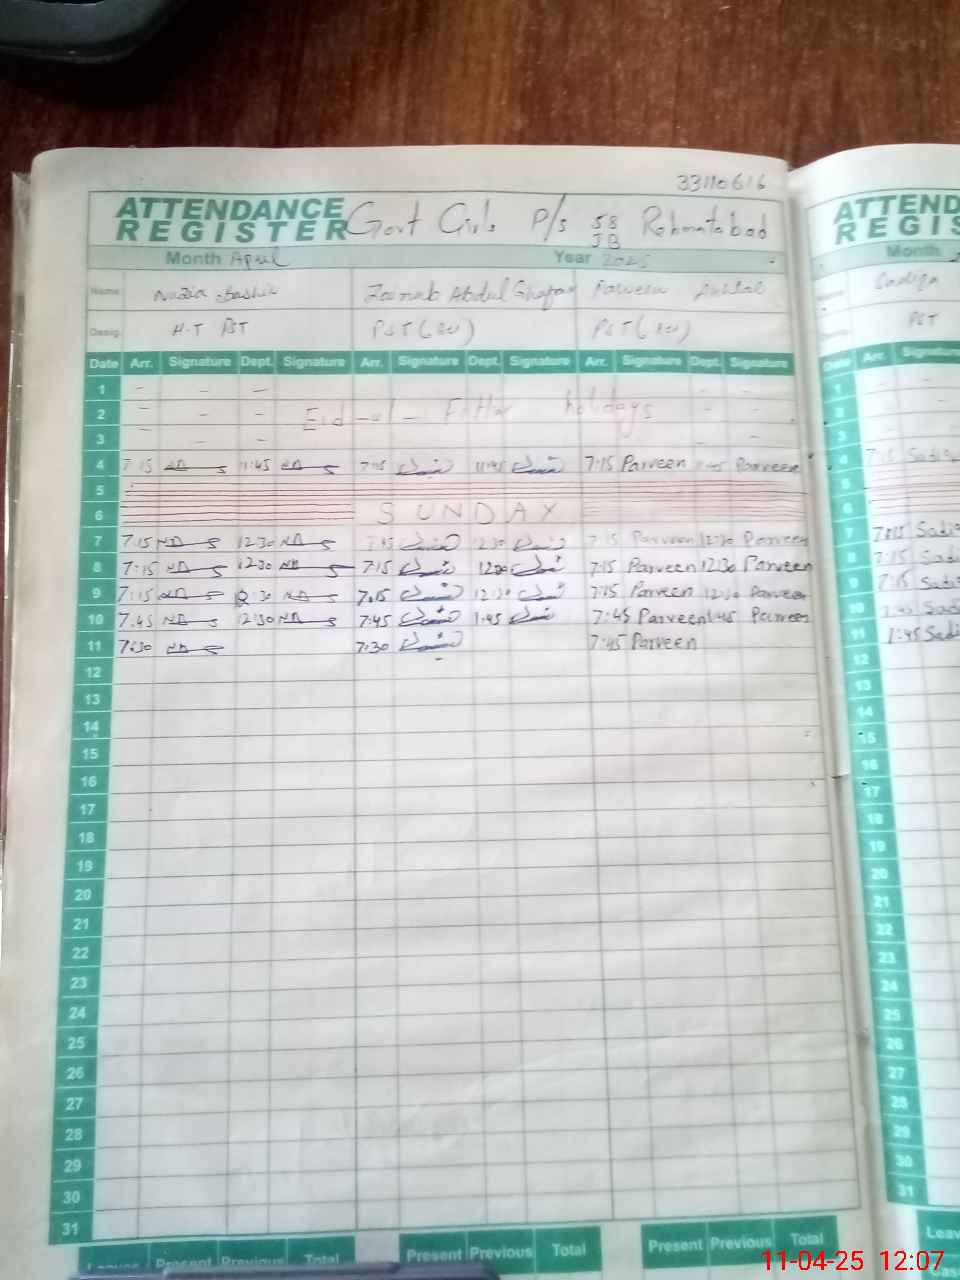 33110616
ATTENDANCE REGISTER Govt Girls P/S 58 JB Rehmatabad
Month April Year 2025
Name Nazia Bashir Zainab Abdul Ghafoor Parveen
Desig. H.T PST PST (
Date Arr. Signature Dept. Signature Arr. Signature Dept. Signature Arr. Signature Dept. Signature
1 - - -
2 - - Eid-ul-Fithar holidays - -
3 - - - - -
4 7:15 11:45 7:15 11:45 7:15 Parveen 11:45 Parveen
5
6 SUNDAY
7 7:15 12:30 7:15 12:30 7:15 Parveen 12:30 Parveen
8 7:15 12:30 7:15 7:15 Parveen 12:30 Parveen
9 7:15 12:30 7:15 12:30 7:15 Parveen 12:30 Parveen
10 7:45 12:30 7:45 1:45 7:45 Parveen 1:45 Parveen
11 7:30 7:30 7:45 Parveen
12
13
14
15
16
17
18
19
20
21
22
23
24
25
26
27
28
29
30
31
Leaves Present Previous Total Present Previous Total Present Previous Total
ATTEND
REGIS
Month
Sadiqa
PST
Date Arr. Signature
1
2
3
4 7:15
5
6
7 7:15
8 7:15
9 7:15
10 7:45
11 7:45
12
13
14
15
16
17
18
19
20
21
22
23
24
25
26
27
28
29
30
31
Leav
11-04-25 12:07